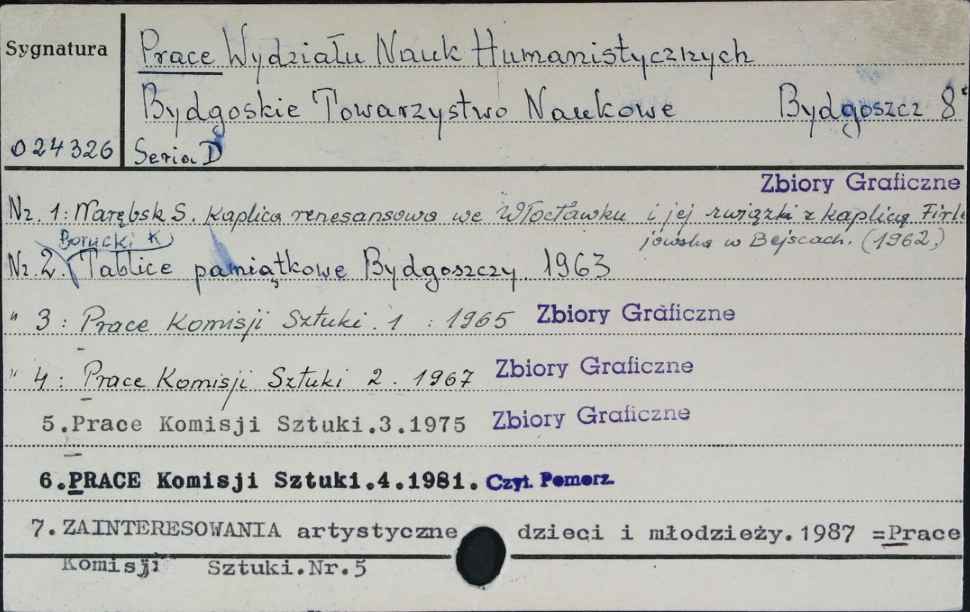 Sygnatura
Prace Wydziału Nauk Humanistycznych
Bydgoskie Towarzystwo Naukowe Bydgoszcz 8°
024326 Seria D
Zbiory Graficzne
Nr. 1: Narębsk S. Kaplica renesansowa we Włocławku i jej związki z kaplicą Firle
jowską w Bejscach. (1962)
Borucki K
Nr. 2. Tablice pamiątkowe Bydgoszczy 1963
" 3: Prace Komisji Sztuki. 1 : 1965 Zbiory Graficzne
" 4: Prace Komisji Sztuki 2. 1967 Zbiory Graficzne
5.Prace Komisji Sztuki.3.1975 Zbiory Graficzne
6.PRACE Komisji Sztuki.4.1981. Czyt. Pomorz.
7.ZAINTERESOWANIA artystyczne dzieci i młodzieży.1987 =Prace
Komisji Sztuki.Nr.5